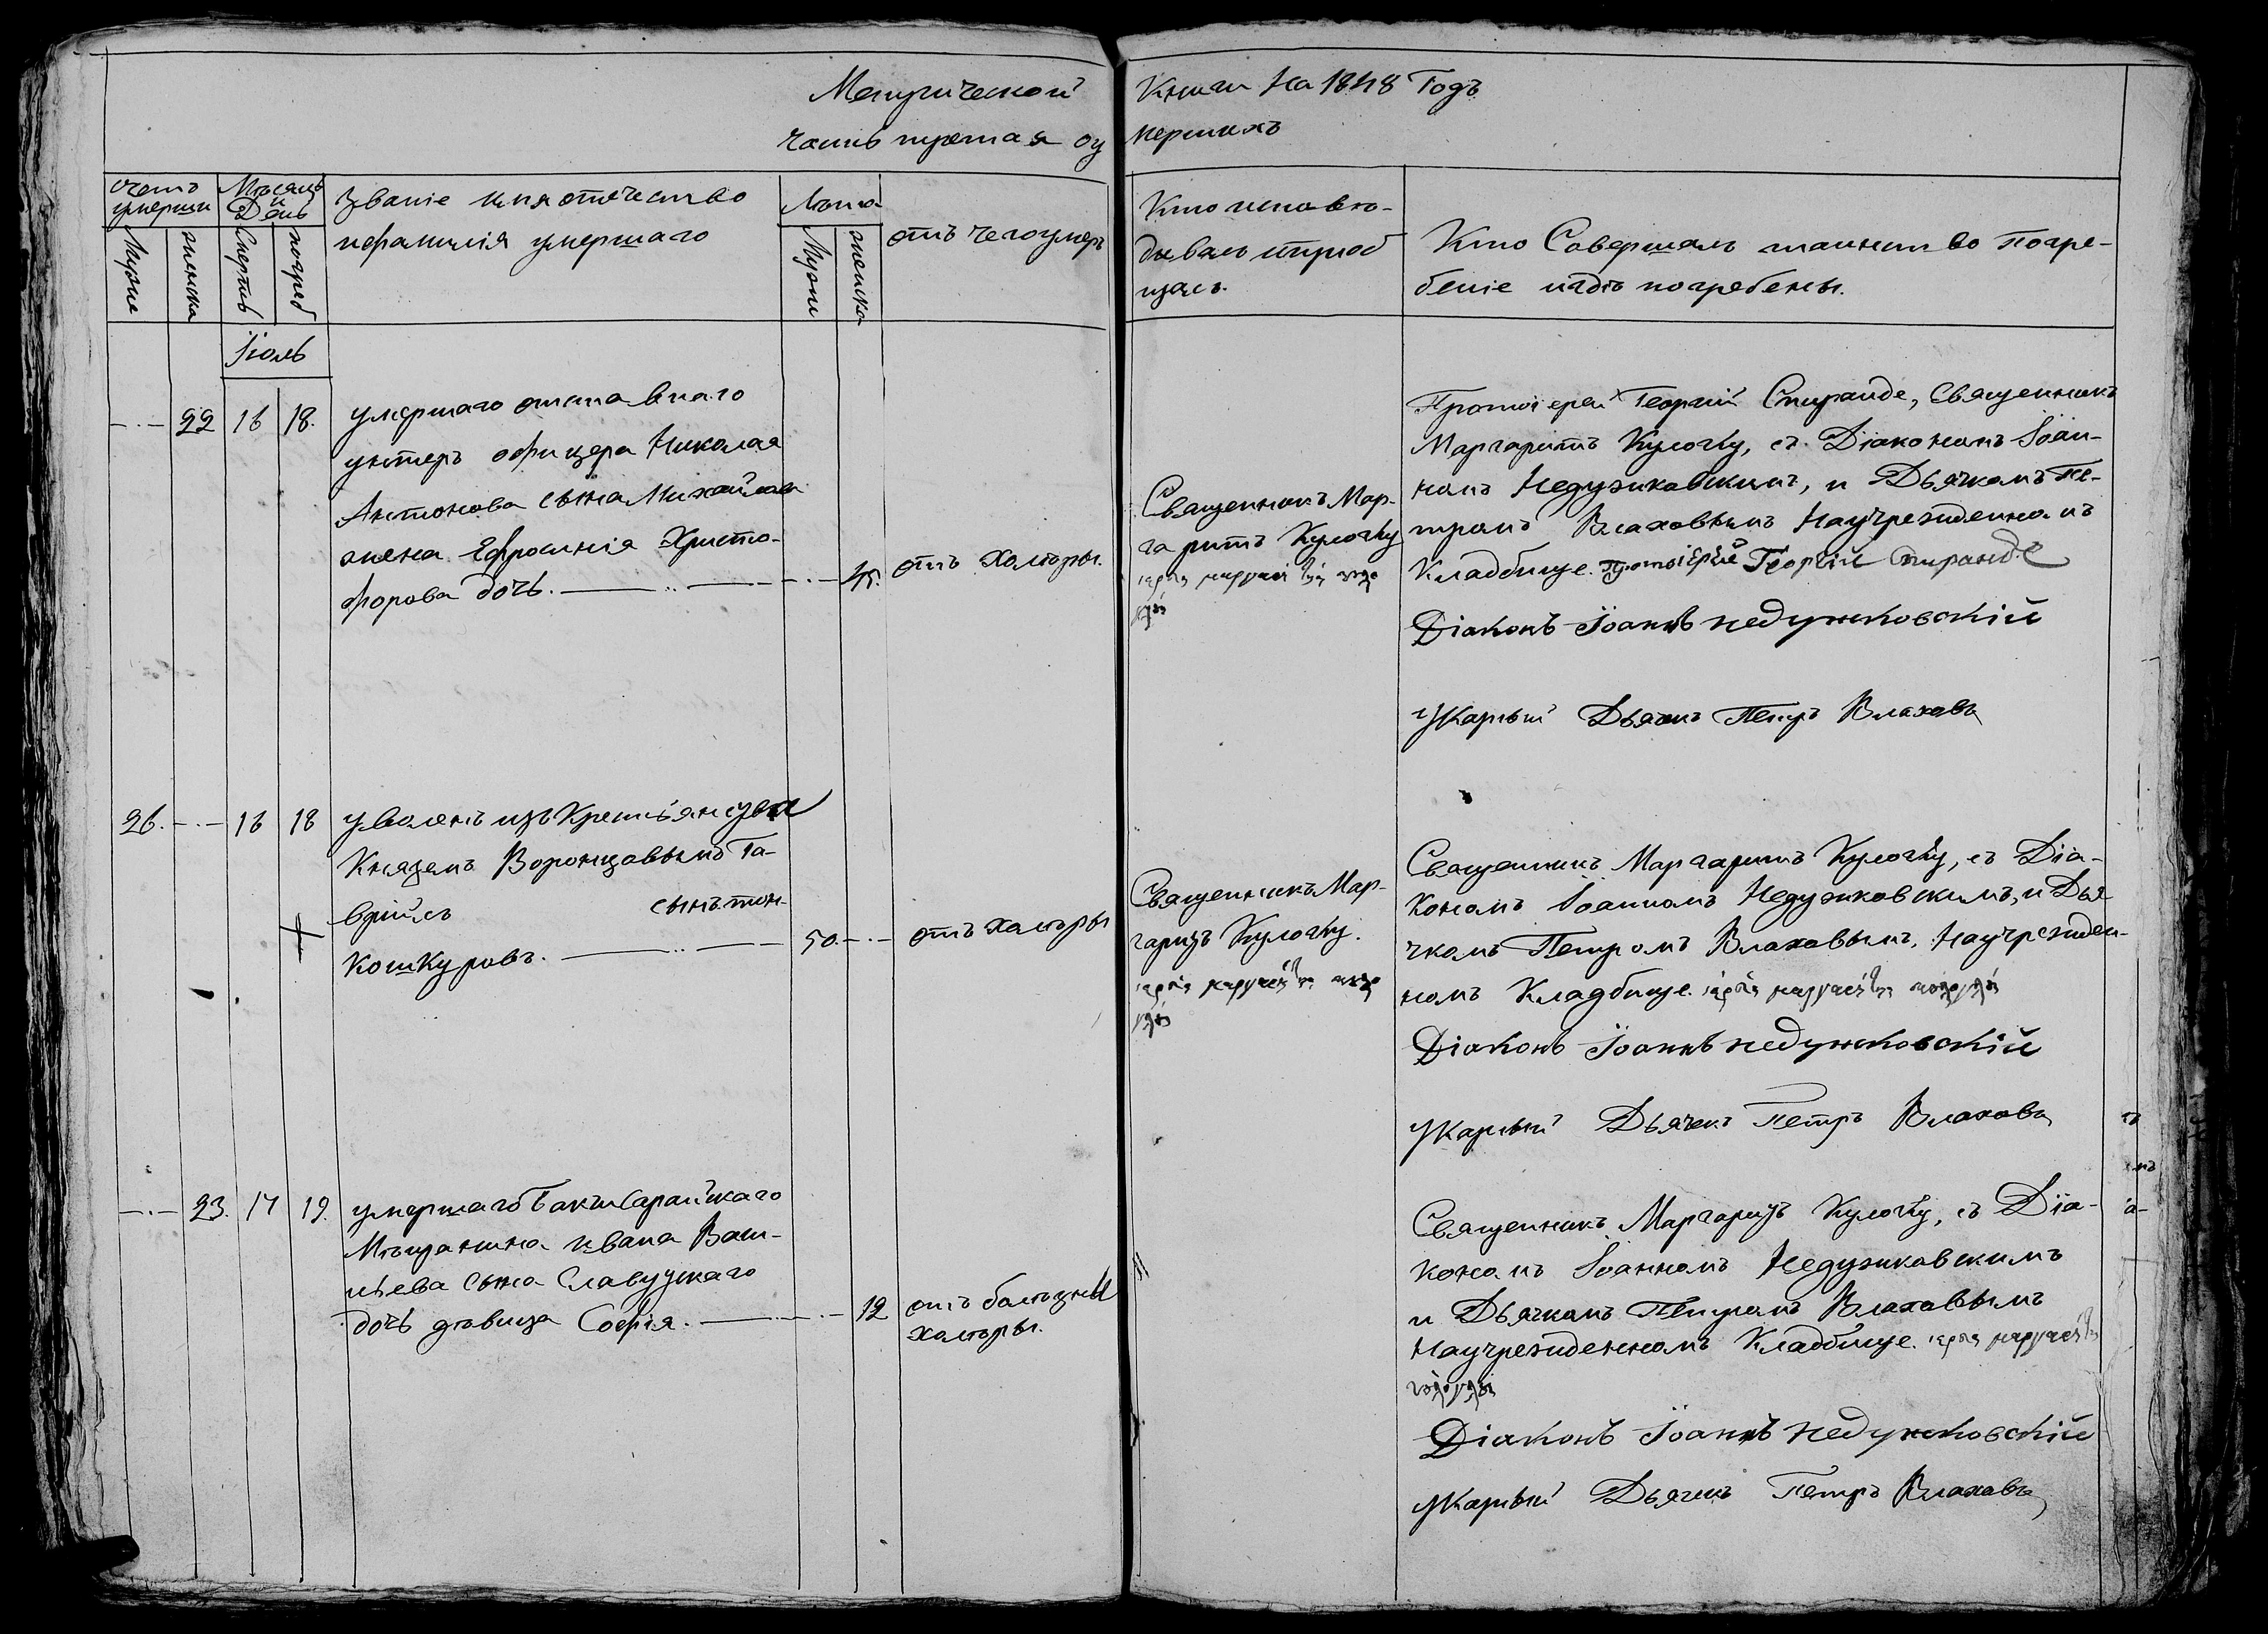 Метрической Книги На 1848 Годъ
часть третая оу мершихъ
счетъ умерши
Мѣсяцъ и День
Званіе имя отечество
и фамилія умершаго
Лѣта
отъ чего умеръ
Кто исповѣ-
дывалъ и приоб
щалъ.
Кто Совершалъ таинство Погре-
беніе и гдѣ погребены.
Мужие
женска
Смерть
погреб
Мужи
женска
Іюль
22
16
18.
умершаго отставнаго
унтеръ офицера Николая
Антонова сына Михайлова
жена Ефросинія Христо-
форова дочь.
45.
отъ холеры.
Священникъ Мар-
гаритъ Кулочку
Протоіереи Георгий Спиранде, Священникъ
Маргаритъ Кулочку, съ Діакономъ Іоан-
номъ Недужковскимъ, и Дьячкомъ Пе-
тромъ Влаховымъ На учрежденномъ
Кладбище. Протоіерей Георгій Спиранде
Діаконъ Іоаннъ недужковскій
Указный Дьячекъ Петръ Влаховъ
26.
16
18
уволенъ изъ Крестьянсува
Княземъ Воронцовымъ Га-
врійлъ сынъ тон-
Кошкуровъ.
50.
отъ халеры
Священникъ Мар-
гаритъ Кулочку.
Священникъ Маргаритъ Кулочку, съ Діа-
Кономъ Іоанномъ Недужковскимъ, и Дья
чкомъ Петромъ Влаховымъ, На учрежден-
номъ Кладбище.
Діаконъ Іоаннъ недужковскій
Указный Дьячекъ Петръ Влаховъ
23.
17
19.
умершаго Бакчисарайскаго
Мѣщанина Ивана Васи-
льева сына Славуцкаго
дочь дѣвица Софія.
12
отъ болѣзни
холеры.
Священникъ Маргаритъ Кулочку, съ Діа-
кономъ Іоанномъ Недужковскимъ
и Дьячкомъ Петромъ Влаховымъ
На учрежденномъ Кладбище.
Діаконъ Іоаннъ недужковскій
Указный Дьячекъ Петръ Влаховъ